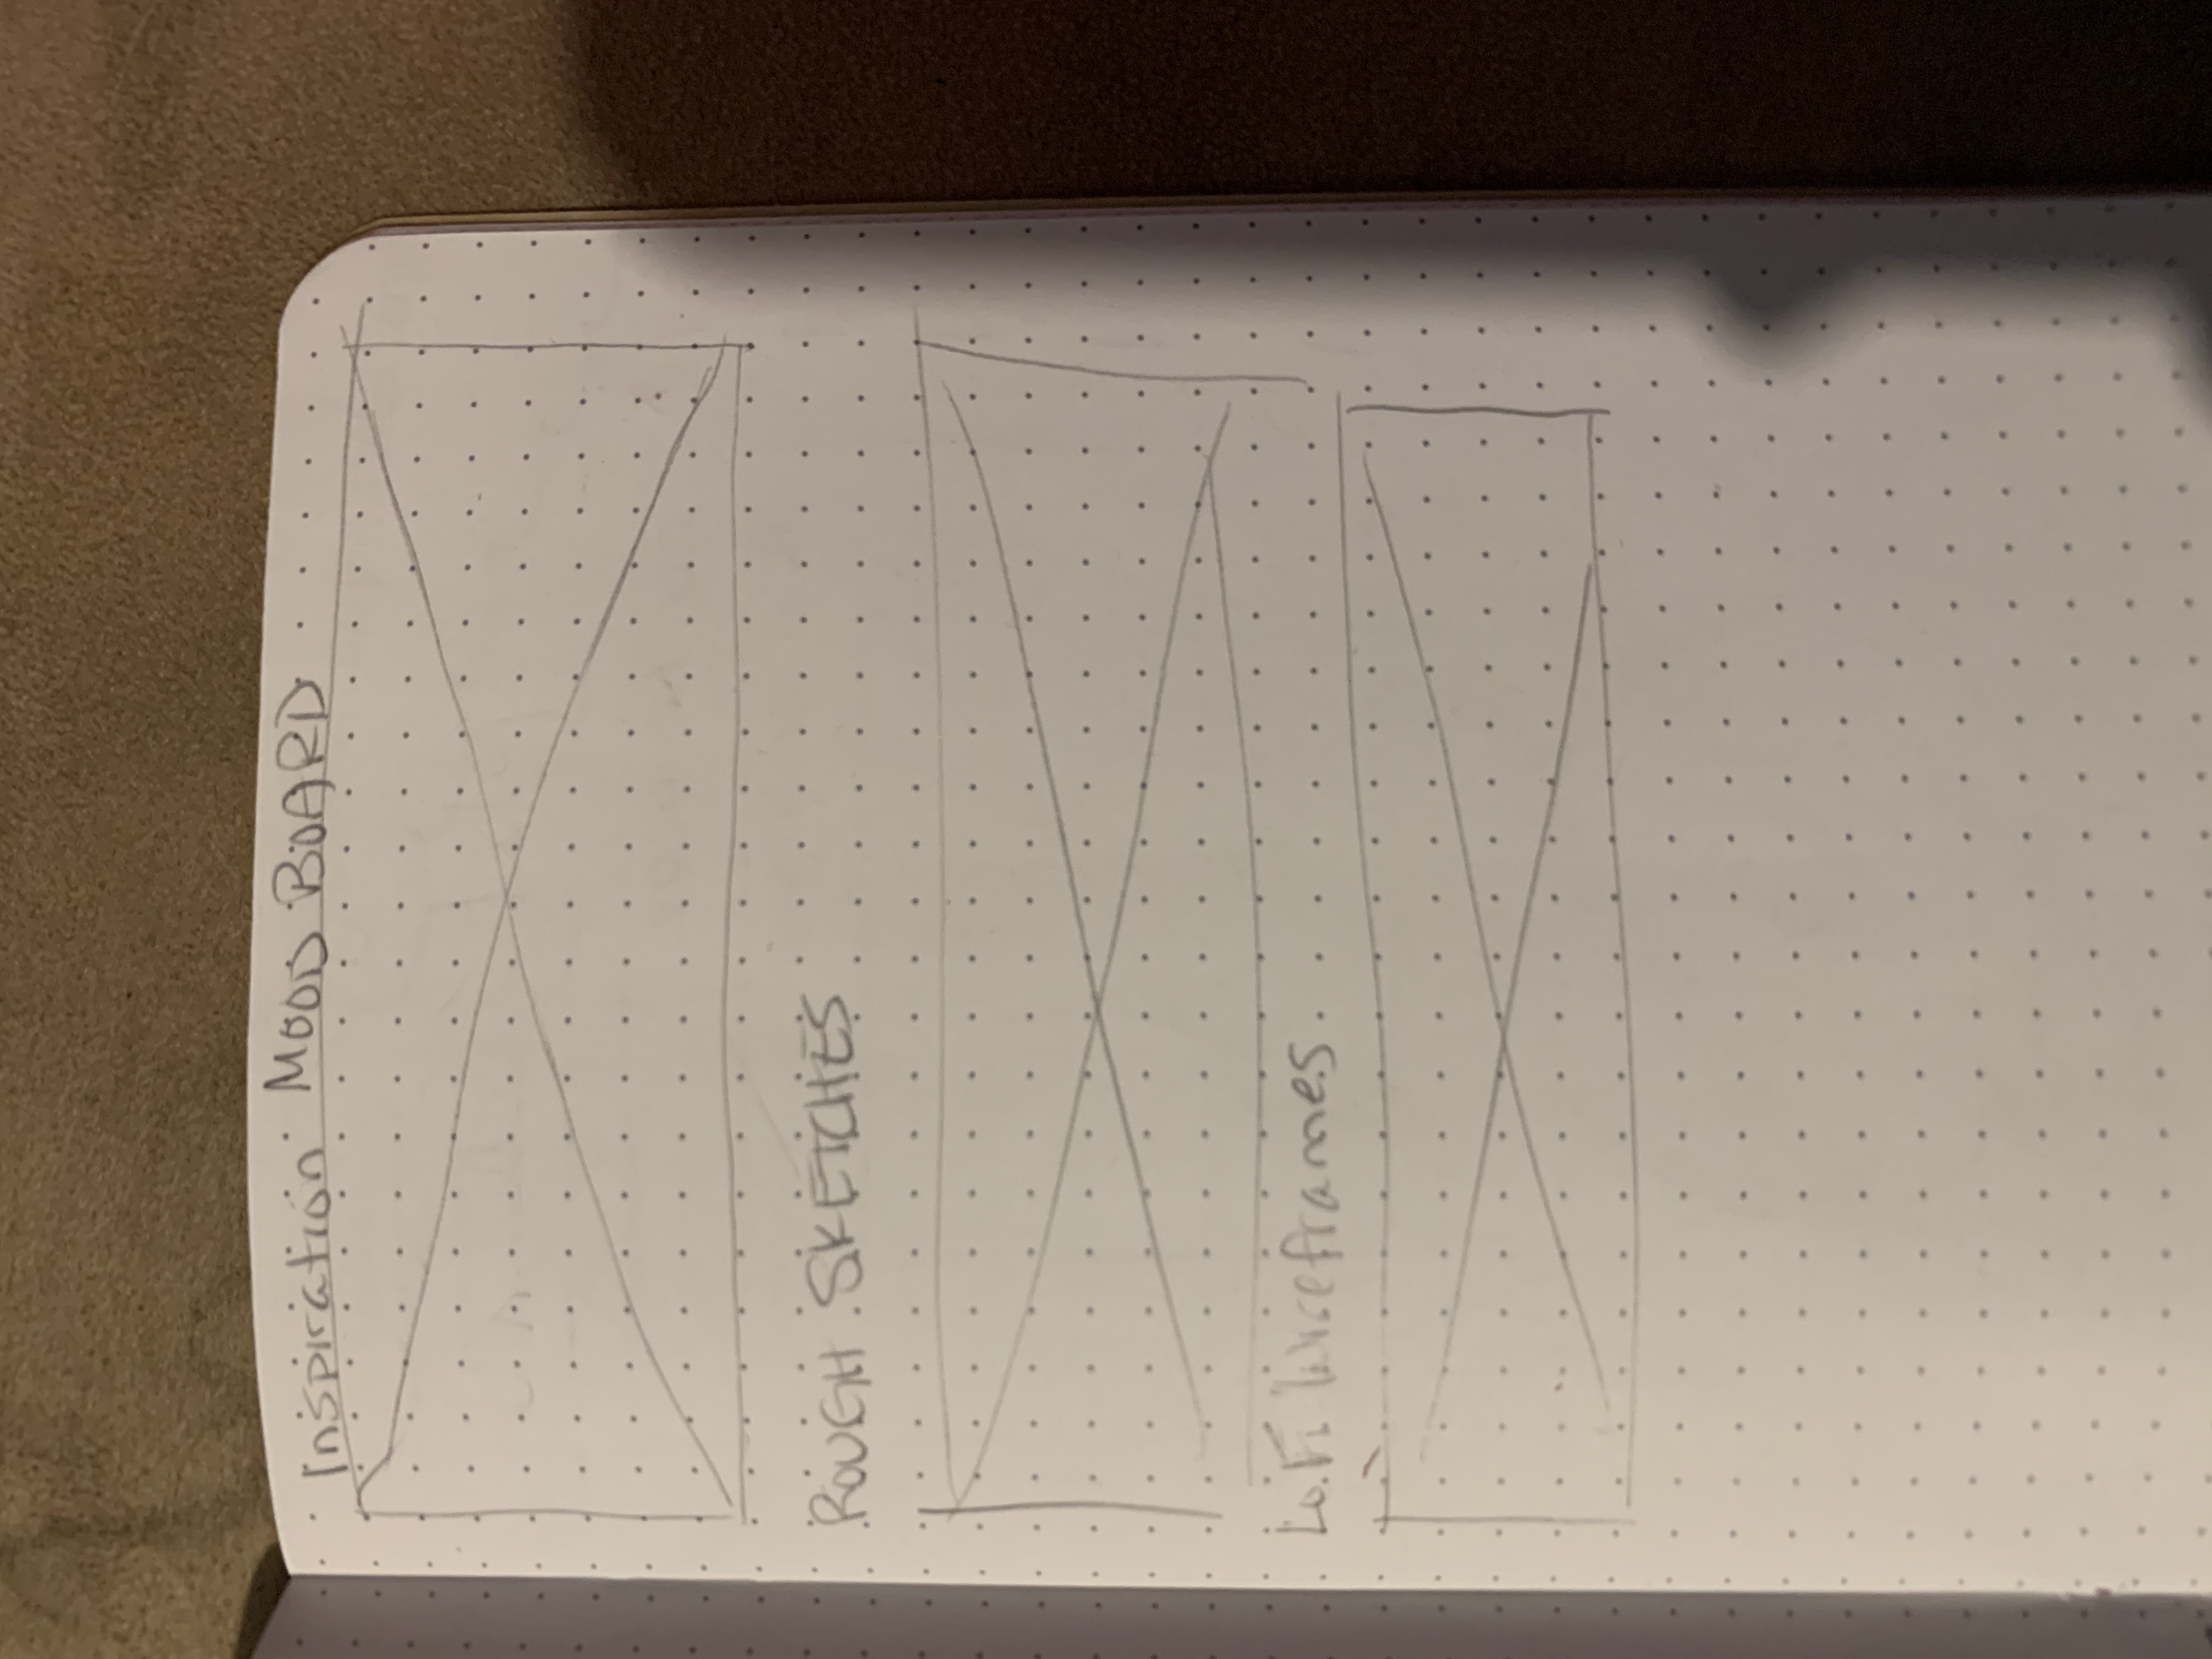 Inspiration MOOD BOARD
ROUGH SKETCHES
Lo.Fi Wireframes